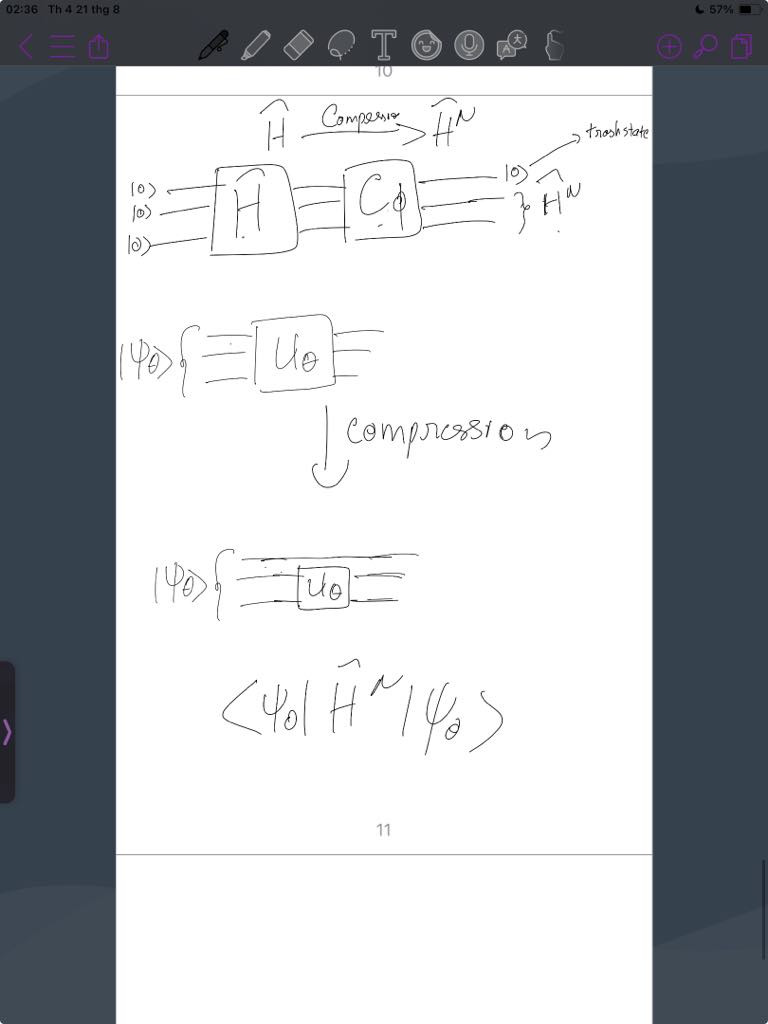 02:36 Th 4 21 thg 8
57%
10
Ĥ Compression Ĥᴺ
trash state
|0⟩
|0⟩
|0⟩
Ĥ
Cϕ
|0⟩
} Ĥᴺ
|ψθ⟩ { Uθ
compression
|ψθ⟩ { Uθ
⟨ψθ| Ĥᴺ |ψθ⟩
11